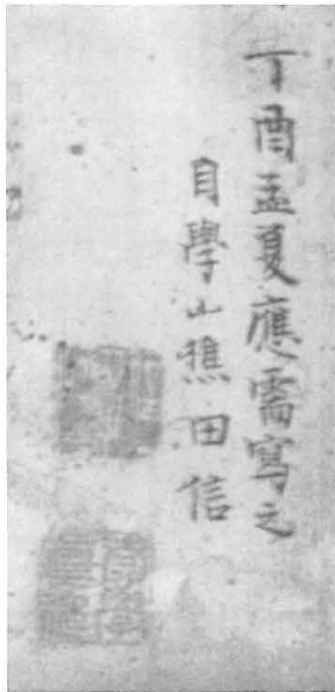 丁酉孟夏應需寫之
自學山樵田信